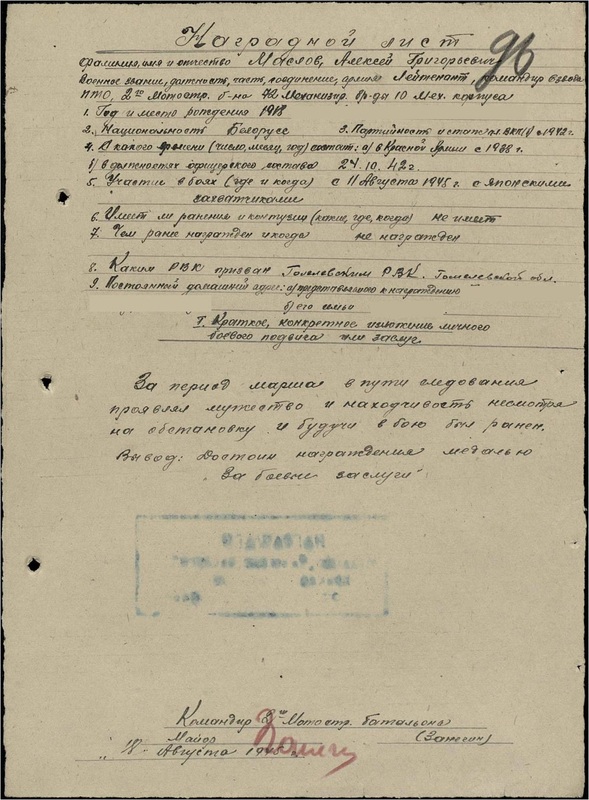 96
Наградной лист
Фамилия, имя и отчество Маслов, Алексей Григорьевич
Военное звание, должность, часть, соединение, армия Лейтенант, командир взвода
ПТО, 2го Мотостр. б-на 72 Механизир. бр-ды 10 Мех. корпуса
1. Год и место рождения 1918
2. Национальность Белорусс 3. Партийность и стаж чл. ВКП/б/ с 1942г.
4. С какого времени (число, месяц, год) состоит: а) в Красной Армии с 1938 г.
б) в должностях офицерского состава 24.10.42 г.
5. Участие в боях (где и когда) с 11 Августа 1945 г. с японскими
захватчиками
6. Имеет ли ранения и контузии (какие, где, когда) не имеет
7. Чем ранее награжден и когда не награжден
8. Каким РВК призван Гомелевским РВК. Гомелевской обл.
9. Постоянный домашний адрес: а) представляемого к награждению
б) его семьи
I. Краткое, конкретное изложение личного
боевого подвига или заслуг.
За период марша в пути следования
проявлял мужество и находчивость несмотря
на обстановку и будучи в бою был ранен.
Вывод: Достоин награждения медалью
"За боевые заслуги"
НАГРАЖДЕН
Командир 2го Мотостр. батальона
Майор
"18" Августа 1945 г.